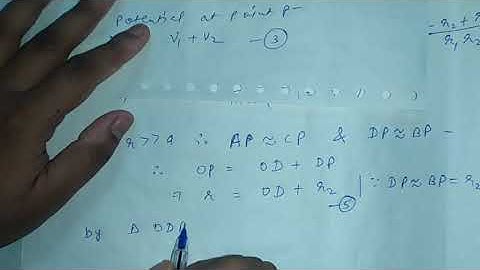 Potential at point P-
V1 + V2 — ③
r >> a ∴ AP ≈ CP & DP ≈ BP -
∴ OP = OD + DP
r = OD + r2 | ∵ DP ≈ BP = r2
—⑤
by Δ ODP